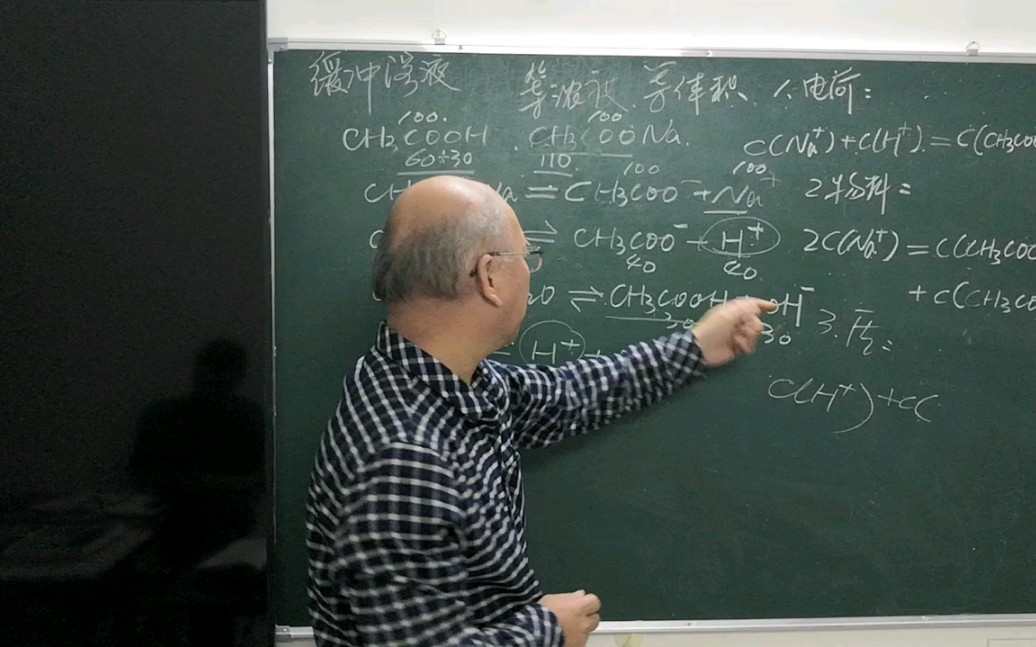 缓冲溶液 等浓度 等体积 1.电荷：
100. 100
CH3COOH . CH3COONa. C(Na+)+C(H+)=C(CH3COO
60+30 110
100 100
CH Na = CH3COO- + Na+ 2物料：
⇌ CH3COO- + H+ 2C(Na+)=C(CH3COO
40 40
2O ⇌ CH3COOH OH- +C(CH3CO
30 30 3.质：
= H+ +
C(H+)+C(